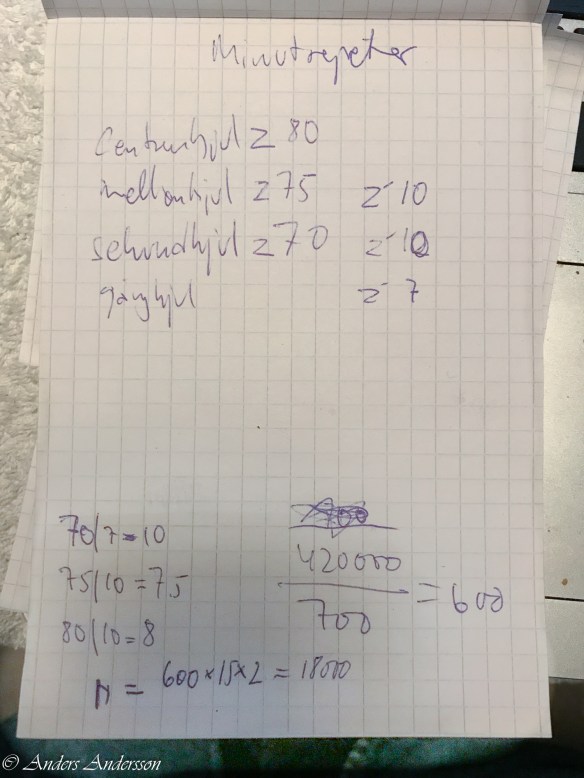 Minutrepeter
Centrumhjul z 80
mellanhjul z 75 z´ 10
Sekundhjul z 70 z´ 10
gånghjul z´ 7
70/7=10
75/10=7,5
80/10=8
420000
700
=600
n = 600×15×2 = 18000
© Anders Andersson